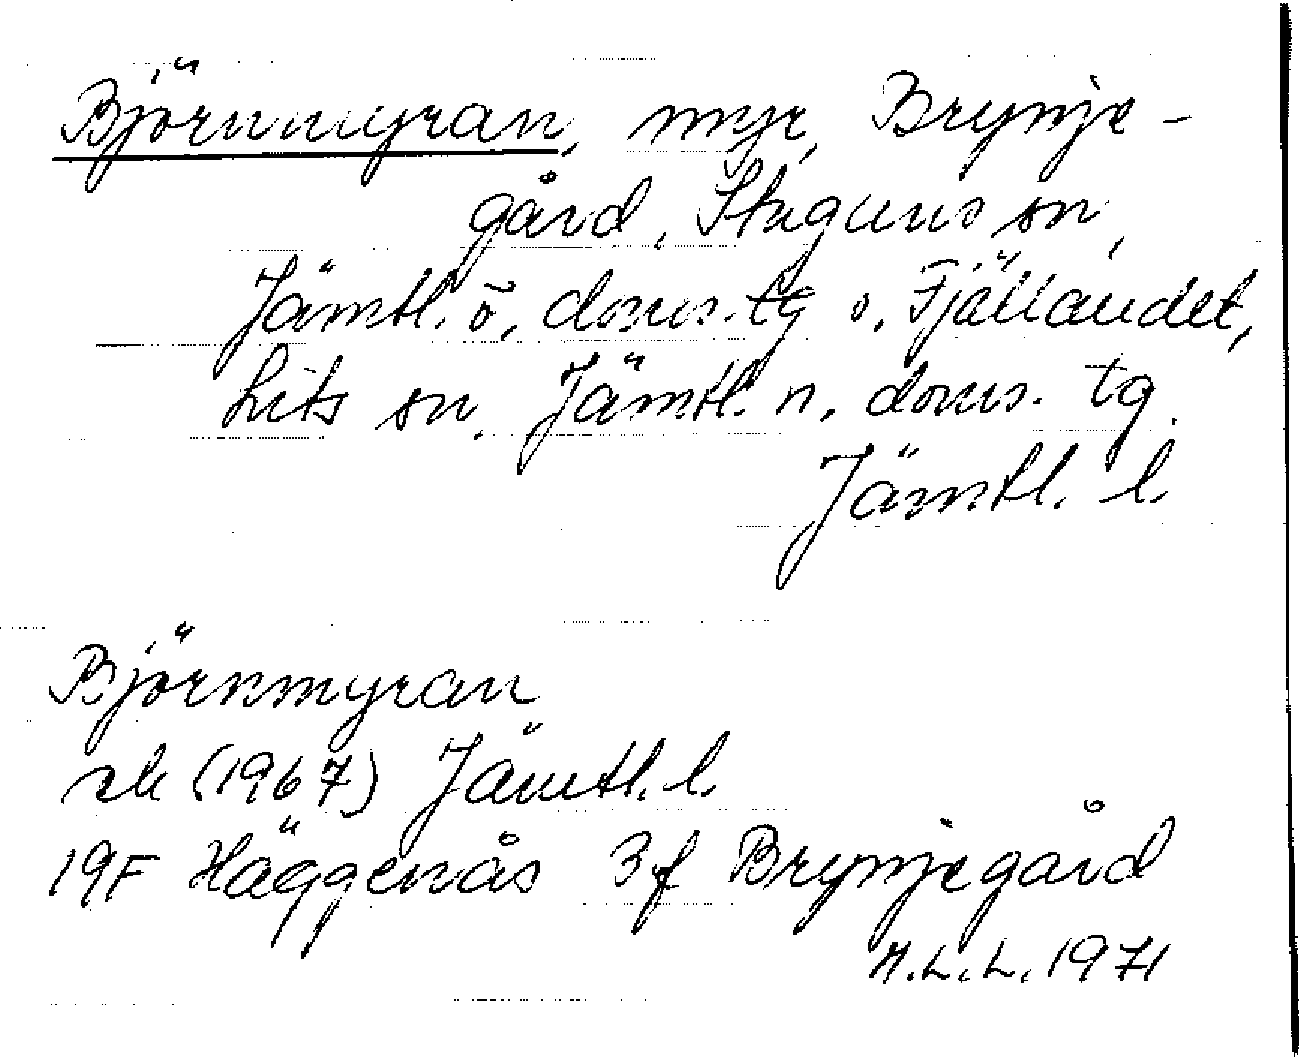 Björnmyran, myr, Brynje-
gård, Stuguns sn,
Jämtl. ö, doms. tg o. Fjällandet,
Lits sn, Jämtl. n. doms. tg.
Jämtl. l.
Björnmyran
rek (1967) Jämtl. l.
19F Häggenås 3f Brynjegård
H.L.L. 1971